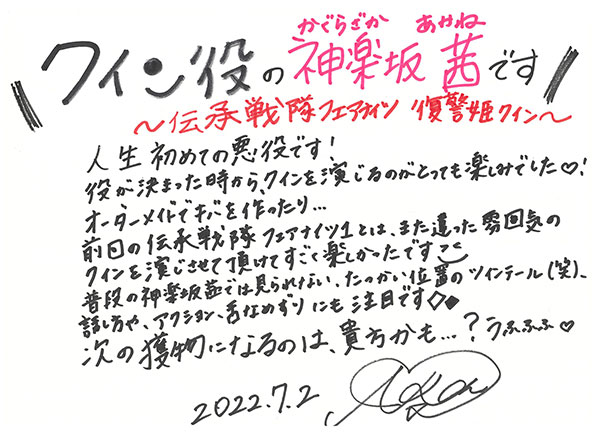 かぐらざか あかね
クイン役の神楽坂 茜です
～伝承戦隊フェアナイツ 復讐姫クイン～
人生初めての悪役です!
役が決まった時から、クインを演じるのがとっても楽しみでした♡!
オーダーメイドでキバを作ったり…
前回の伝承戦隊フェアナイツ1とは、また違った雰囲気の
クインを演じさせて頂けてすごく楽しかったです
普段の神楽坂茜では見られない、たっかい位置のツインテール(笑)、
話し方や、アクション、舌なめずりにも注目です◇◆
次の獲物になるのは、貴方かも…?うふふふ♡
2022.7.2